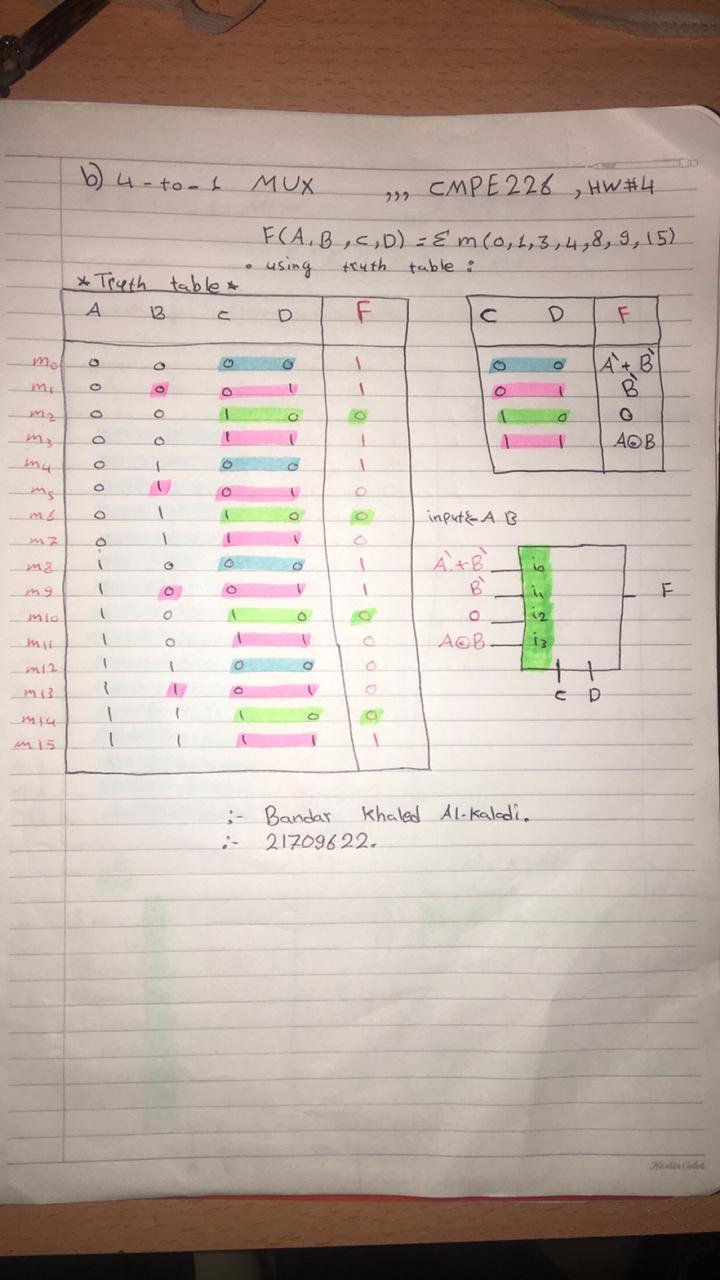 b) 4-to-1 MUX ,,, CMPE226 , HW#4
F(A,B,C,D) = Σ m(0,1,3,4,8,9,15)
• using truth table :
* Truth table *
A B C D F
m0 0 0 0 0 1
m1 0 0 0 1 1
m2 0 0 1 0 0
m3 0 0 1 1 1
m4 0 1 0 0 1
m5 0 1 0 1 0
m6 0 1 1 0 0
m7 0 1 1 1 0
m8 1 0 0 0 1
m9 1 0 0 1 1
m10 1 0 1 0 0
m11 1 0 1 1 0
m12 1 1 0 0 0
m13 1 1 0 1 0
m14 1 1 1 0 0
m15 1 1 1 1 1
C D F
0 0 A`+B`
0 1 B`
1 0 0
1 1 A⊙B
input A B
A`+B` i0
B` i1 F
0 i2
A⊙B i3
C D
:- Bandar Khaled Al-kaladi.
:- 21709622.